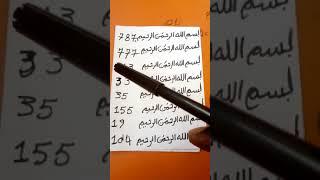 787 بسم الله الرحمن الرحيم
777 بسم الله الرحمن الرحيم
3 بسم الله الرحمن الرحيم
33 بسم الله الرحمن الرحيم
35 بسم الله الرحمن الرحيم
155 بسم الله الرحمن الرحيم
19 بسم الله الرحمن الرحيم
104 الله الرحمن الرحيم